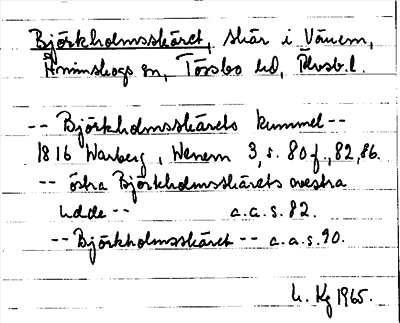 Björkholmsskäret, skär i Vänern,
Ånimskogs sn, Tössbo hd, Älvsb.l.
-- Björkholmsskärets kummel --
1816 Warberg, Wenern 3, s. 80 f., 82, 86.
-- östra Björkholmsskärets westra
udde -- a.a.s. 82.
-- Björkholmsskäret -- a.a.s. 90.
Kg 1965.